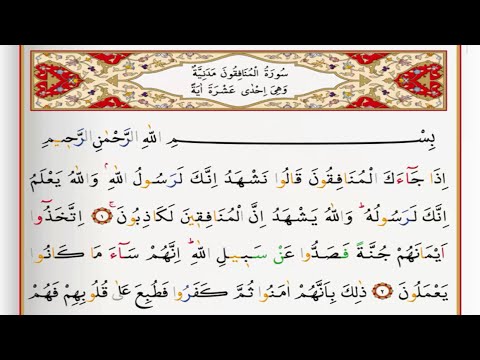 سُورَةُ الْمُنَافِقُونَ مَدَنِيَّةٌ
وَهِيَ اِحْدٰى عَشْرَةَ اٰيَةً
بِسْمِ اللّٰهِ الرَّحْمٰنِ الرَّحٖيمِ
اِذَا جَٓاءَكَ الْمُنَافِقُونَ قَالُوا نَشْهَدُ اِنَّكَ لَرَسُولُ اللّٰهِۢ وَاللّٰهُ يَعْلَمُ
اِنَّكَ لَرَسُولُهُۜ وَاللّٰهُ يَشْهَدُ اِنَّ الْمُنَافِقٖينَ لَكَاذِبُونَۚ ﴿١﴾ اِتَّخَذُٓوا
اَيْمَانَهُمْ جُنَّةً فَصَدُّوا عَنْ سَبٖيلِ اللّٰهِۜ اِنَّهُمْ سَٓاءَ مَا كَانُوا
يَعْمَلُونَ ﴿٢﴾ ذٰلِكَ بِاَنَّهُمْ اٰمَنُوا ثُمَّ كَفَرُوا فَطُبِعَ عَلٰى قُلُوبِهِمْ فَهُمْ